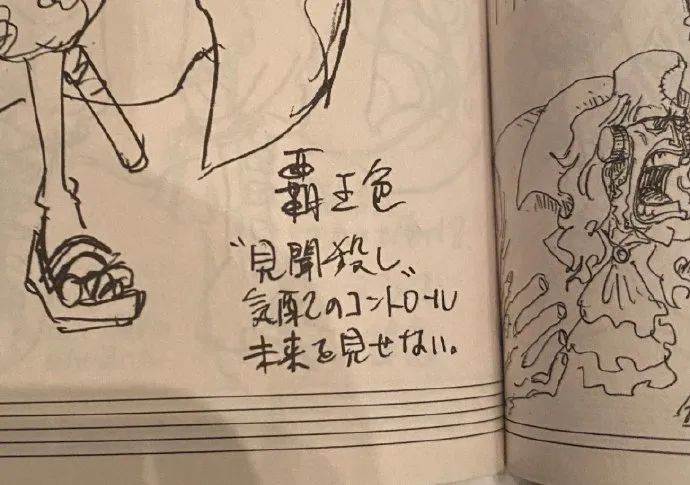 覇王色
〝見聞殺し〟
気配でのコントロール
未来を見せない。